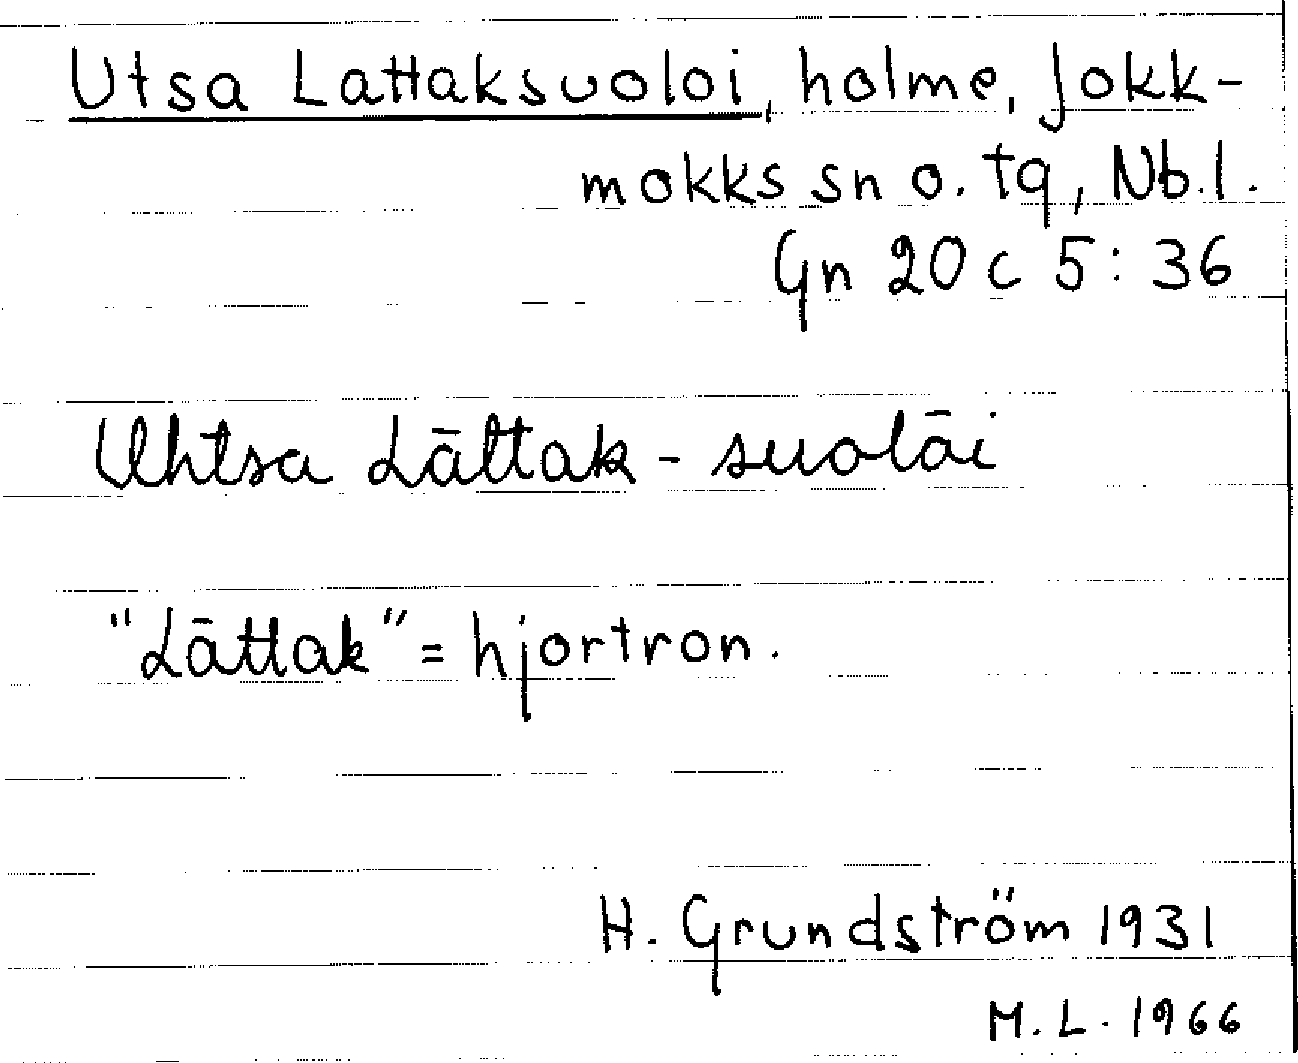 Utsa Lattaksuoloi, holme, Jokk-
mokks sn o. tg, Nb.l.
Gn 20 c 5:36
Uhtsa Lāttak - suolāi
"Lāttak" = hjortron.
H. Grundström 1931
M.L. 1966